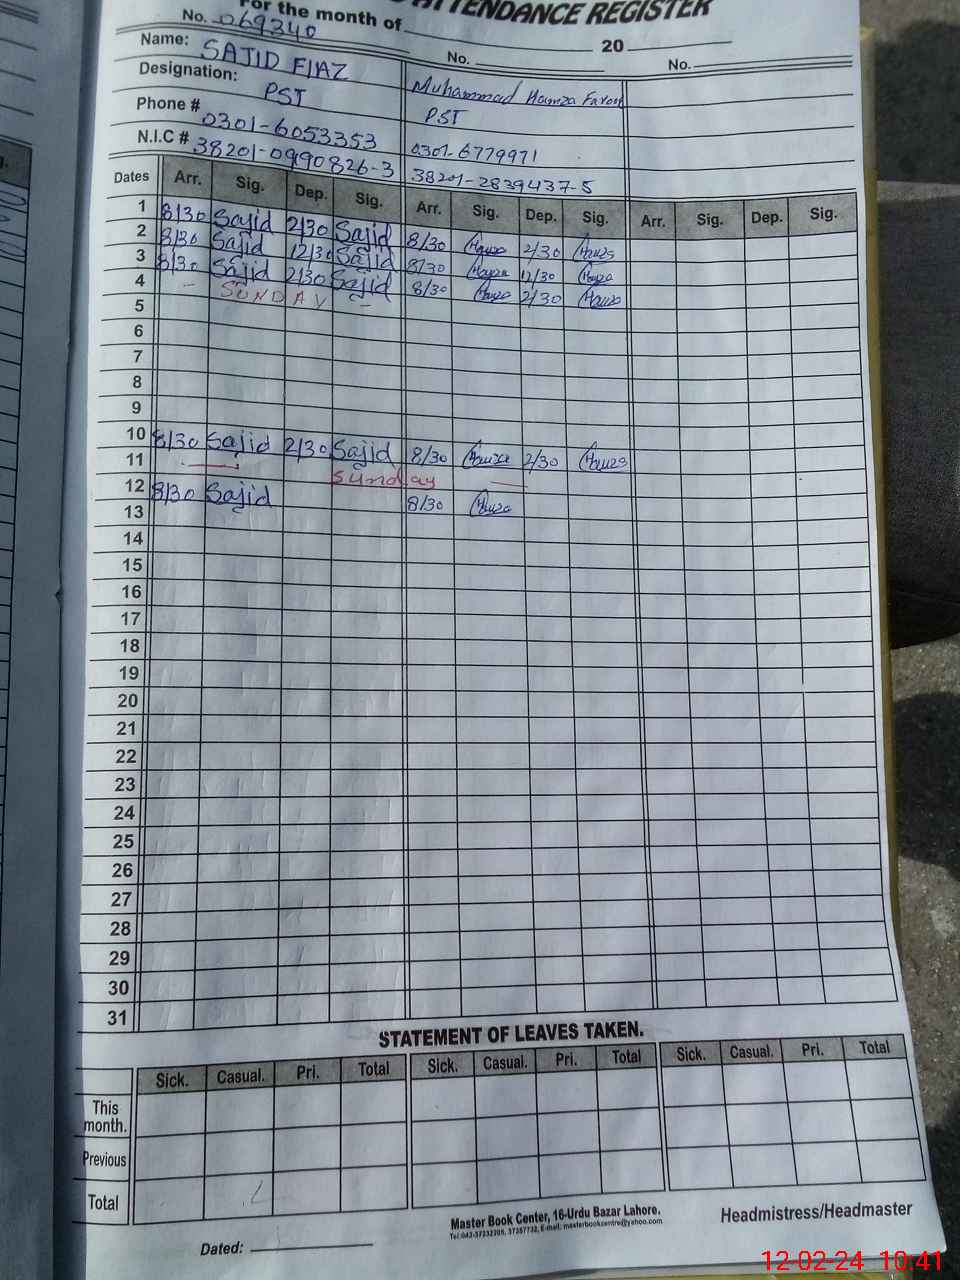 ATTENDANCE REGISTER
For the month of 20
No. 069340 No. No.
Name: SAJID FIAZ Muhammad Hamza Farooq
Designation: PST PST
Phone # 0301-6053353 0301-6779971
N.I.C # 38201-0990826-3 38201-2839437-5
Dates Arr. Sig. Dep. Sig. Arr. Sig. Dep. Sig. Arr. Sig. Dep. Sig.
1 8/30 Sajid 2/30 Sajid 8/30 Hamza 2/30 Hamza
2 8/30 Sajid 12/30 Sajid 8/30 Hamza 12/30 Hamza
3 8/30 Sajid 2/30 Sajid 8/30 Hamza 2/30 Hamza
4 - SUNDAY -
5
6
7
8
9
10 8/30 Sajid 2/30 Sajid 8/30 Hamza 2/30 Hamza
11 Sunday
12 8/30 Sajid 8/30 Hamza
13
14
15
16
17
18
19
20
21
22
23
24
25
26
27
28
29
30
31
STATEMENT OF LEAVES TAKEN.
Sick. Casual. Pri. Total Sick. Casual. Pri. Total Sick. Casual. Pri. Total
This month.
Previous
Total
Master Book Center, 16-Urdu Bazar Lahore.
Tel:042-37232205, 37357732, E-mail: masterbookcentre@yahoo.com
Headmistress/Headmaster
Dated:
12-02-24 10:41